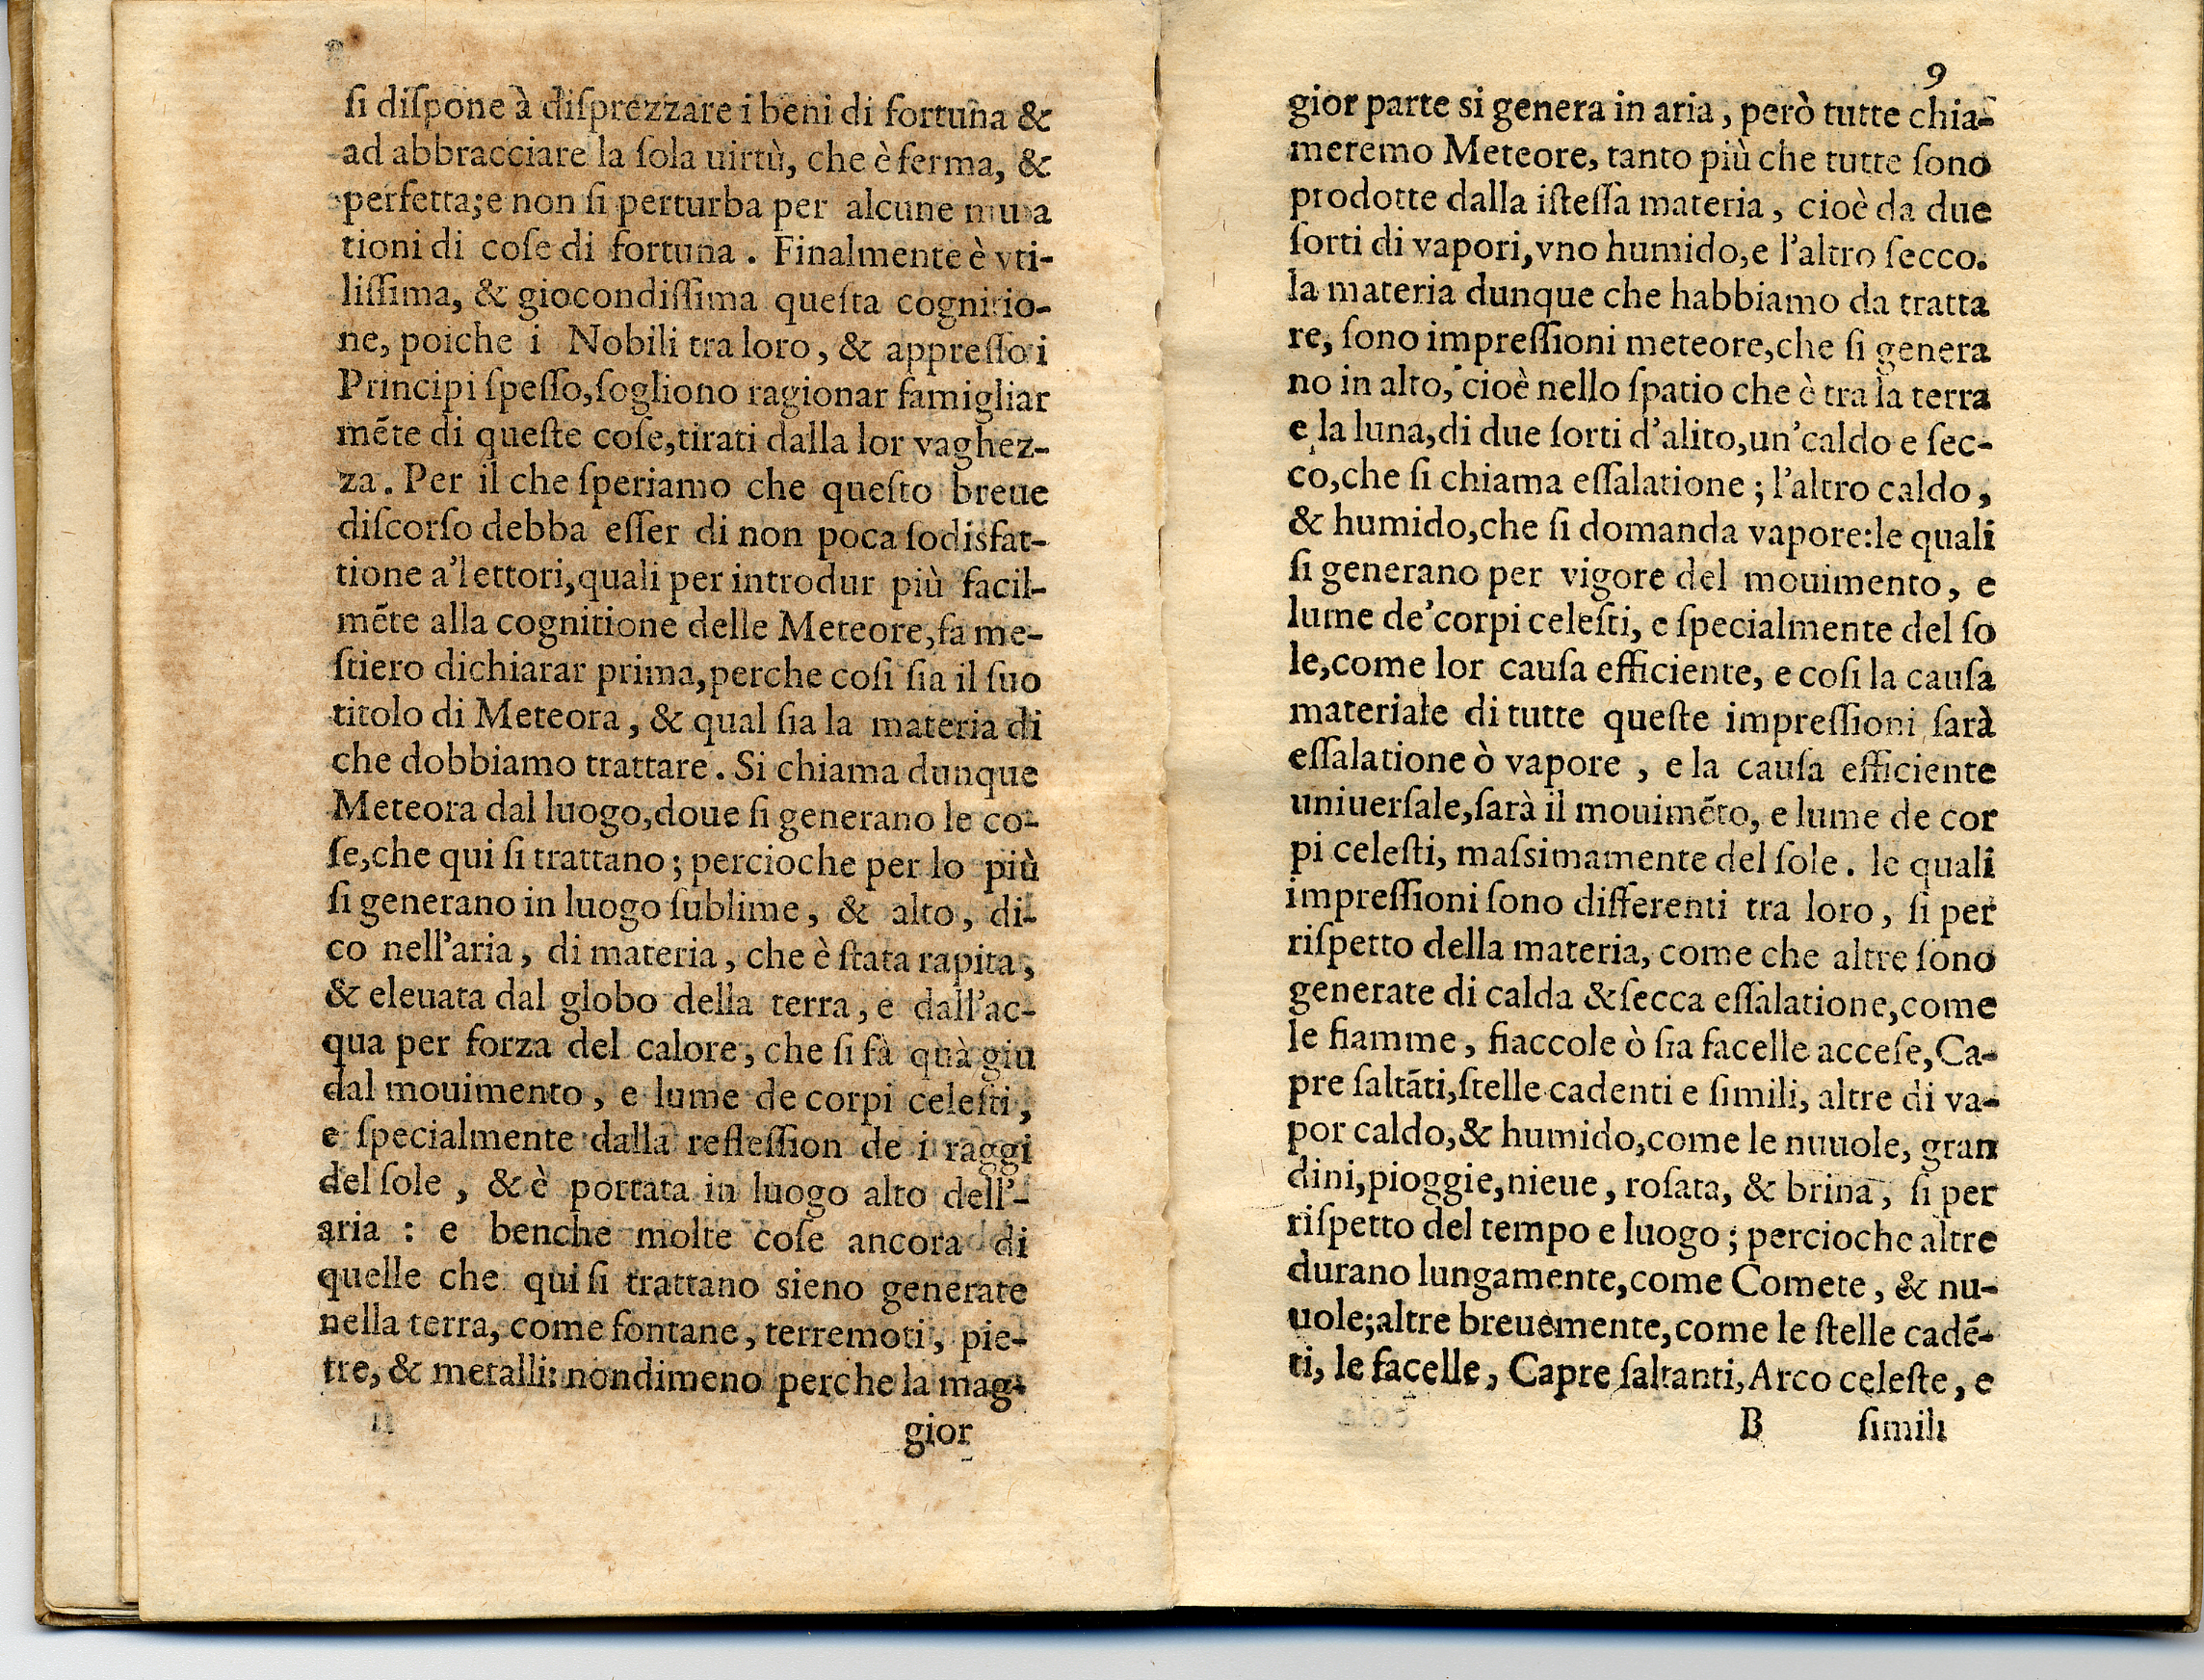 ſi diſpone à diſprezzare i beni di fortuna &
ad abbracciare la ſola uirtù, che è ferma, &
perfetta; e non ſi perturba per alcune muta
tioni di coſe di fortuna. Finalmente è vti-
liſſima, & giocondiſſima queſta cognitio-
ne, poiche i Nobili tra loro, & appreſſo i
Principi ſpeſſo, ſogliono ragionar famigliar
mẽte di queſte coſe, tirati dalla lor vaghez-
za. Per il che ſperiamo che queſto breue
diſcorſo debba eſſer di non poca ſodisfat-
tione a'lettori, quali per introdur più facil-
mẽte alla cognitione delle Meteore, fa me-
ſtiero dichiarar prima, perche coſi ſia il ſuo
titolo di Meteora, & qual ſia la materia di
che dobbiamo trattare. Si chiama dunque
Meteora dal luogo, doue ſi generano le co-
ſe, che qui ſi trattano; percioche per lo più
ſi generano in luogo ſublime, & alto, di-
co nell'aria, di materia, che è ſtata rapita,
& eleuata dal globo della terra, e dall'ac-
qua per forza del calore, che ſi fà quà giu
dal mouimento, e lume de corpi celeſti,
e ſpecialmente dalla refleſſion de i raggi
del ſole, & è portata in luogo alto dell'-
aria : e benche molte coſe ancora di
quelle che qui ſi trattano sieno generate
nella terra, come fontane, terremoti, pie-
tre, & metalli: nondimeno perche la mag-
gior
9
gior parte si genera in aria, però tutte chia-
meremo Meteore, tanto più che tutte ſono
prodotte dalla iſteſſa materia, cioè da due
ſorti di vapori, vno humido, e l'altro ſecco.
la materia dunque che habbiamo da tratta
re, ſono impreſſioni meteore, che ſi genera
no in alto, cioè nello ſpatio che è tra la terra
e la luna, di due ſorti d'alito, un'caldo e ſec-
co, che ſi chiama eſſalatione; l'altro caldo,
& humido, che ſi domanda vapore: le quali
ſi generano per vigore del mouimento, e
lume de'corpi celeſti, e ſpecialmente del ſo
le, come lor cauſa efficiente, e coſi la cauſa
materiale di tutte queſte impreſſioni ſarà
eſſalatione ò vapore, e la cauſa efficiente
uniuerſale, ſarà il mouimẽto, e lume de cor
pi celeſti, maſsimamente del ſole. le quali
impreſſioni ſono differenti tra loro, ſi per
riſpetto della materia, come che altre ſono
generate di calda & ſecca eſſalatione, come
le fiamme, fiaccole ò ſia facelle acceſe, Ca-
pre ſaltãti, ſtelle cadenti e ſimili, altre di va-
por caldo, & humido, come le nuuole, gran
dini, pioggie, nieue, roſata, & brina, ſi per
riſpetto del tempo e luogo; percioche altre
durano lungamente, come Comete, & nu-
uole; altre breuemente, come le ſtelle cadẽ-
ti, le facelle, Capre ſaltanti, Arco celeſte, e
B ſimili